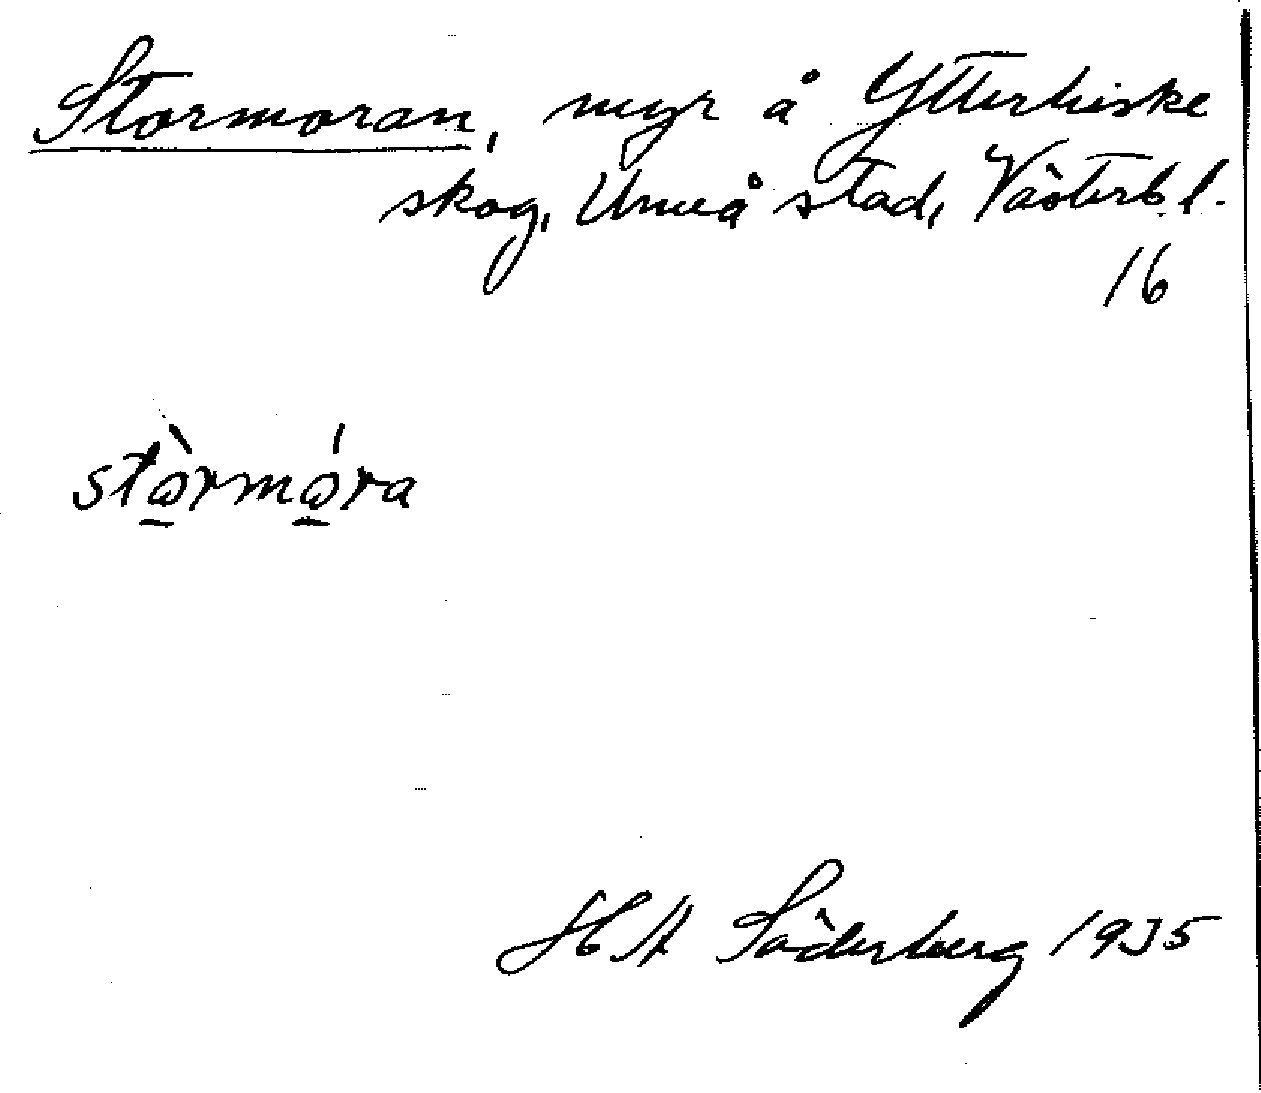 Stormoran, myr å Ytterhiske
skog, Umeå stad, Västerb. l.
16
stò̱rmó̱ra
H A Söderberg 1935